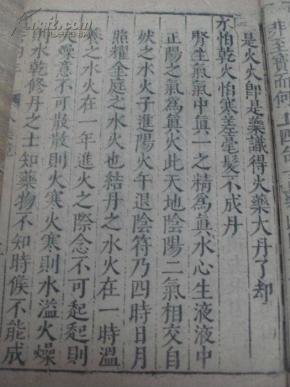 非至寶而何上西句
是火火即是藥識得火藥大丹了却
水怕乾火怕寒差毫髮不成丹
腎生氣氣中眞一之精為眞水心生液液中
正陽之氣為眞火此天地陰陽二氣相交自
然之水火子進陽火午退陰符乃四時日月
照耀金庭之水火也結丹之水火在一時溫
養之水火在一年進火之際念不可起起則
火燥意不可散散則火寒火寒則水溢火燥
則水乾修丹之士知藥物不知時候不能成